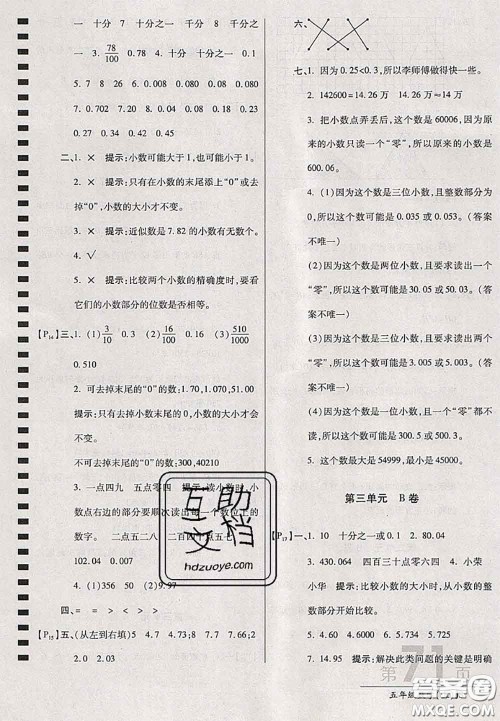 一 十分 7 十分之一 千分 8 千分之
一 3. 78/100 0.78 4. 十分 十分之一 0.1
5. 7 8 28 6. 0.080 0.080 0.080
7. 0.702 0.720 0.207 0.270 8. 0.18
0.27 0.33 0.42 0.45 9. 4
二、1. × 提示:小数可能大于1,也可能小于1。
2. × 提示:只有在小数的末尾添上“0”或去
掉“0”,小数的大小才不变。
3. × 提示:近似数是7.82的小数有无数个。
4. √
5. × 提示:比较两个小数的精确度时,要看
它们的小数部分的位数是否相等。
【P14】三、1. (1) 3/10 0.3 (2) 16/100 0.16 (3) 510/1000
0.510
2. 可去掉末尾的“0”的数:1.70,1.070,51.00
提示:只有去掉小数末尾的0,小数的大小才会
不变。
不可去掉末尾的“0”的数:300,40210
3. 一点四九 五点零四 提示:读小数时,小
数点右边的部分要顺次读出每一个数位上的
数字。 二点五二八 二百四十点五
102.04 0.007 (2)56 (3)9.97
四、= = > < > >
【P15】五、(从左到右填)5 4.7 4.73;8 7.7 7.66;2
2.0 2.03
六、
七、1. 因为0.25<0.3,所以李师傅做得快一些。
2. 142600=14.26万 14.26万≈14万
3. 把小数点弄丢后,这个数是60006,因为原
来的小数只读一个“零”,所以原来的小数是
600.06。
4. (1)因为这个数是三位小数,且整数部分为
0,所以这个数可能是0.035或0.053。(答案
不唯一)
(2)因为这个数是两位小数,且要求读出一个
“零”,所以这个数可能是30.05或50.03。(答
案不唯一)
(3)因为这个数是三位小数,且要求读出两个
“零”,所以这个数可能是3.005或5.003。(答
案不唯一)
(4)因为这个数是一位小数,且一个“零”都不
读,所以这个数可能是300.5或500.3。(答案
不唯一)
5. 最大是54999,最小是45000。
第三单元 B卷
一、1. 10 十分之一或0.1 2. 80.04
3. 430.064 四百三十点零六四 4. 小荣
小华 提示:比较小数的大小时,从小数的整数
部分开始比较。
5. 4.60 4.600 6. 5.734 5.725
7. 14.95 提示:解决此类问题的关键是明确
第71页
五年级
互助文档
hdzuoye.com
答案圈
MXQE.COM